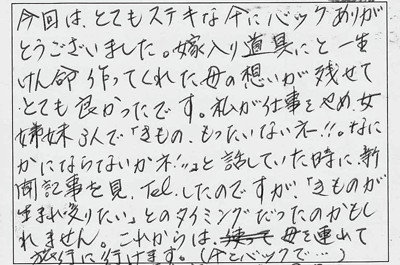 今回は、とてもステキな傘にバック、ありが
とうございました。嫁入り道具にと一生
けん命作ってくれた母の想いが残せて
とても良かったです。私が仕事をやめ、女
姉妹3人で「きもの、もったいないネー!!。なに
かにならないかネ!!」と話していた時に、新
聞記事を見、Tel.したのですが、「きものが
生まれ変りたい」とのタイミングだったのかもし
れません。これからは、母を連れて
旅行に行けます。(傘とバックで…)